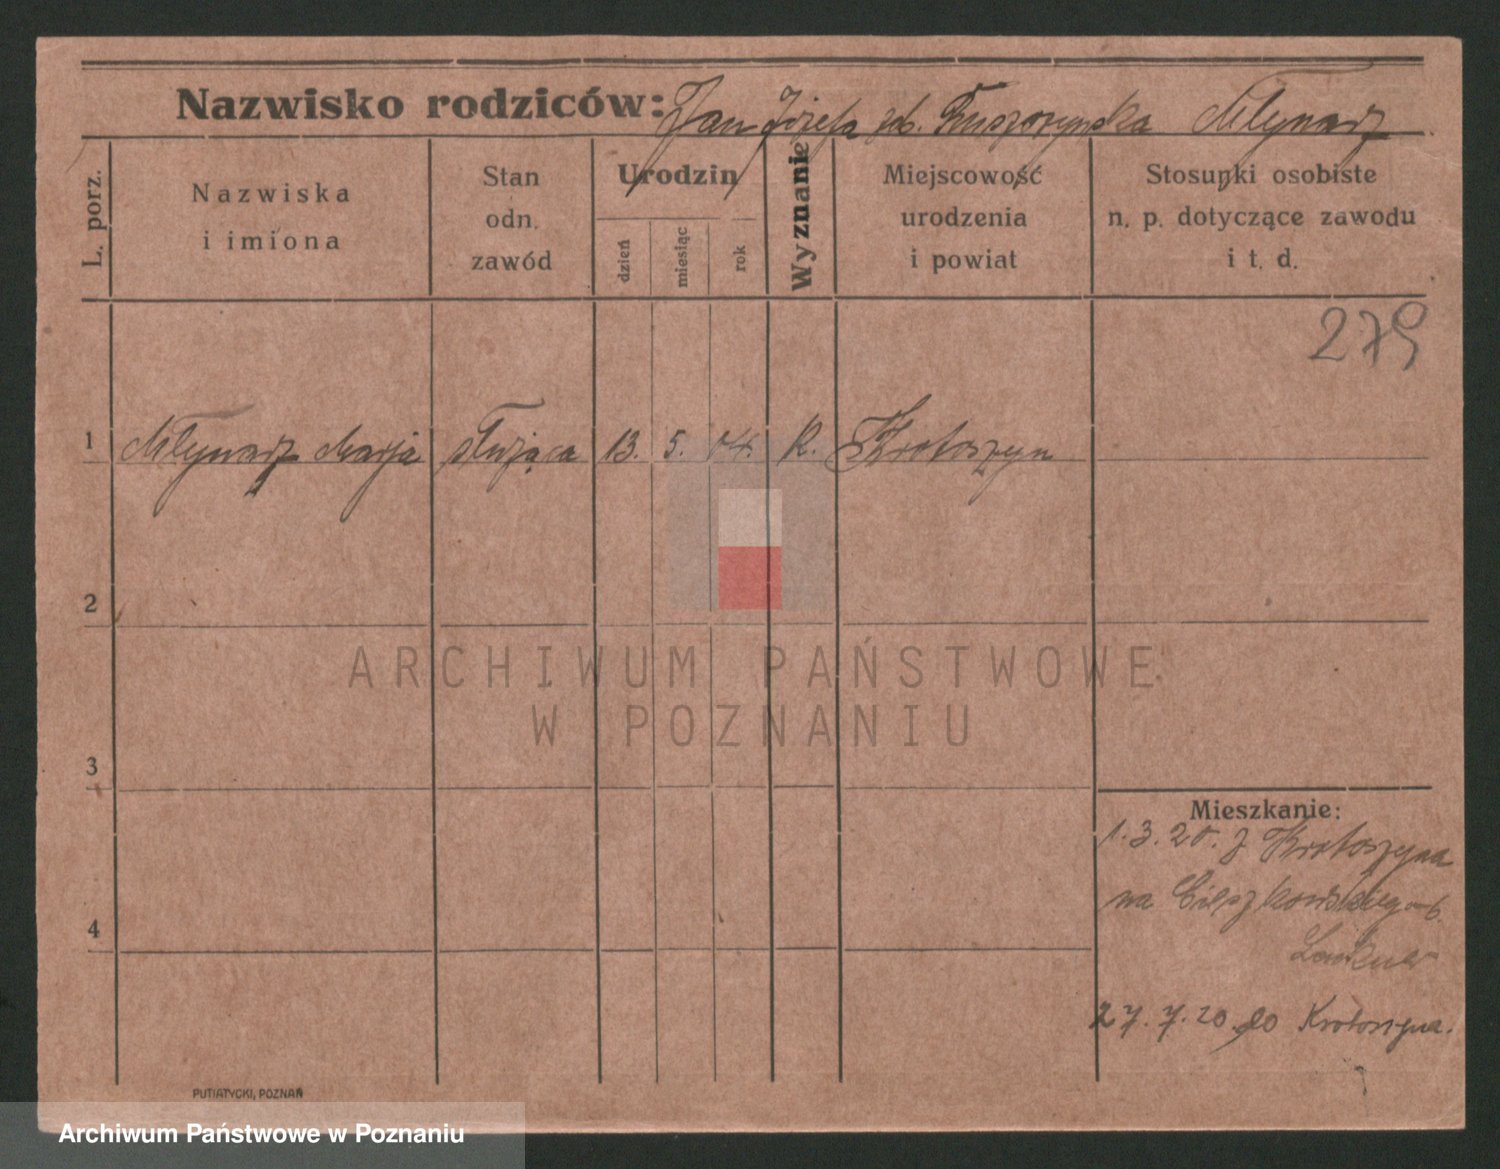 Nazwisko rodziców: Jan Józefa zd. Młynarz
L. porz.
Nazwiska
i imiona
Stan
odn.
zawód
Urodzin
dzień
miesiąc
rok
Wyznanie
Miejscowość
urodzenia
i powiat
Stosunki osobiste
n. p. dotyczące zawodu
i t. d.
279
1 Młynarz Marja służąca 13. 5. 04. R. Krotoszyn
2
3
4
Mieszkanie:
1.3.20. z Krotoszyna
na Cieszkowskiego 6.
27.7.20 do Krotoszyna.
PUTIATYCKI, POZNAŃ
ARCHIWUM PAŃSTWOWE
W POZNANIU
Archiwum Państwowe w Poznaniu